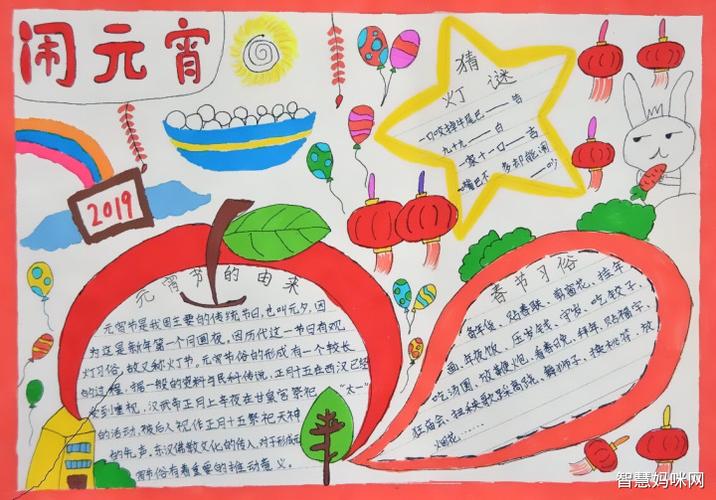 闹元宵
2019
猜
灯谜
一口咬掉牛尾巴——告
九十九——白
一家十一口——吉
嘴巴不多却能闹——吵
元宵节的由来
元宵节是我国主要的传统节日,也叫元夕,因
为这是新年第一个月圆夜。因历代这一节日有观
灯习俗,故又称灯节。元宵节俗的形成有一个较长
的过程,据一般的资料与民科传说,正月十五在西汉已经
受到重视,汉武帝正月上辛夜在甘泉宫祭祀“太一”
的活动,被后人视作正月十五祭祀天神
的先声。东汉佛教文化的传入,对于形成元
宵节俗有着重要的推动意义。
春节习俗
备年货、贴春联、剪窗花、挂年
画、年夜饭、压岁钱、守岁、吃饺子、
吃汤圆、放鞭炮、看春晚、拜年、贴福字、
逛庙会、扭秧歌、踩高跷、舞狮子、换桃符、放
烟花……
智慧妈咪网